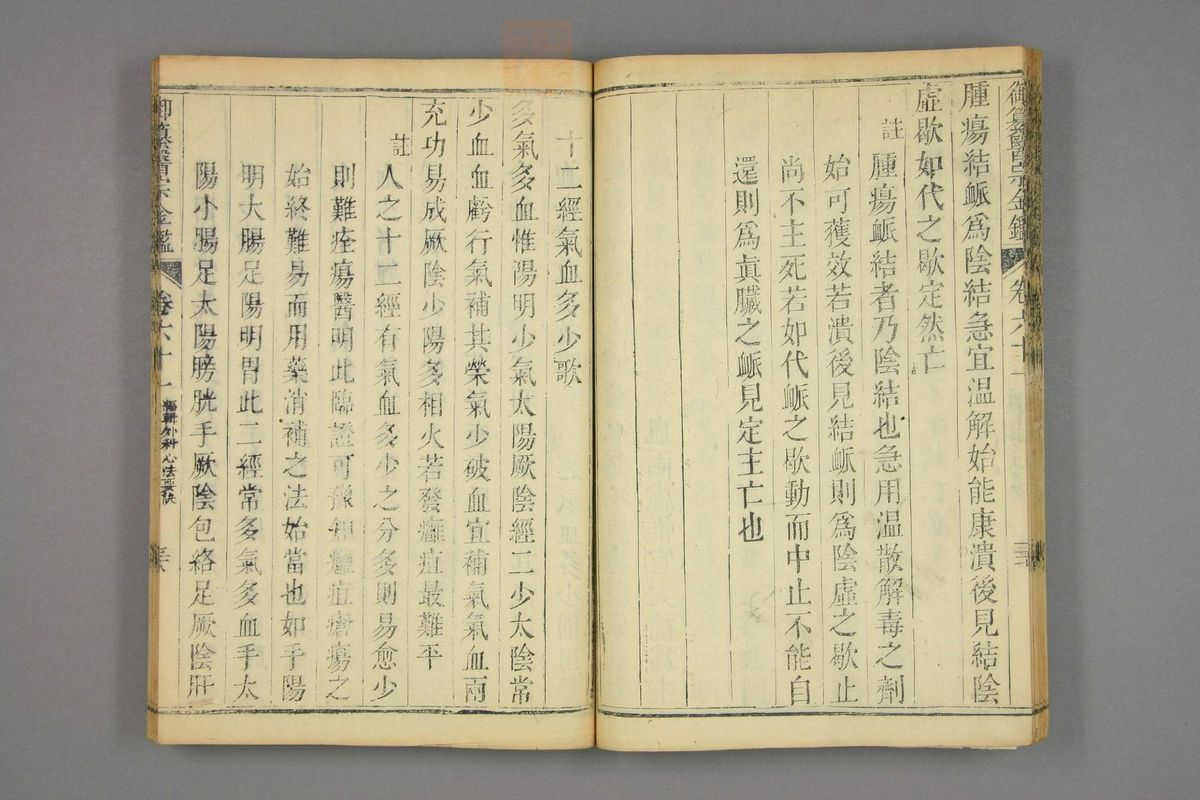 御纂醫宗金鑑 卷六十一
腫瘍結䘑爲陰結急宜溫解始能康潰後見結陰
虛歇如代之歇定然亡
註腫瘍䘑結者乃陰結也急用溫散解毒之劑
始可獲效若潰後見結䘑則爲陰虛之歇止
尚不主死若如代䘑之歇動而中止不能自
還則爲眞臟之䘑見定主亡也
十二經氣血多少歌
多氣多血惟陽明少氣太陽厥陰經二少太陰常
少血血虧行氣補其榮氣少破血宜補氣氣血兩
充功易成厥陰少陽多相火若發癰疽最難平
註人之十二經有氣血多少之分多則易愈少
則難痊瘍醫明此臨證可豫知癰疽瘡瘍之
始終難易而用藥消補之法始當也如手陽
明大腸足陽明胃此二經常多氣多血手太
陽小腸足太陽膀胱手厥陰包絡足厥陰肝
御纂醫宗金鑑 卷六十一 編輯外科心法要訣